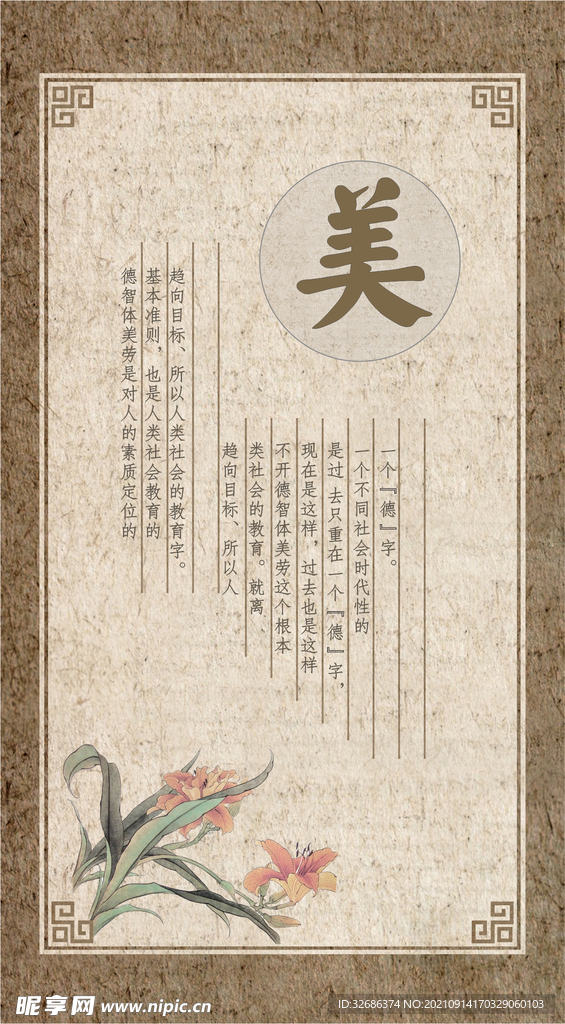 美
一个『德』字。
一个不同社会时代性的
是过 去只重在一个『德』字，
现在是这样，过去也是这样
不开德智体美劳这个根本
类社会的教育。就离
趋向目标、所以人
趋向目标、所以人类社会的教育字。
基本准则，也是人类社会教育的
德智体美劳是对人的素质定位的
昵享网 www.nipic.cn
ID:32686374 NO:20210914170329060103